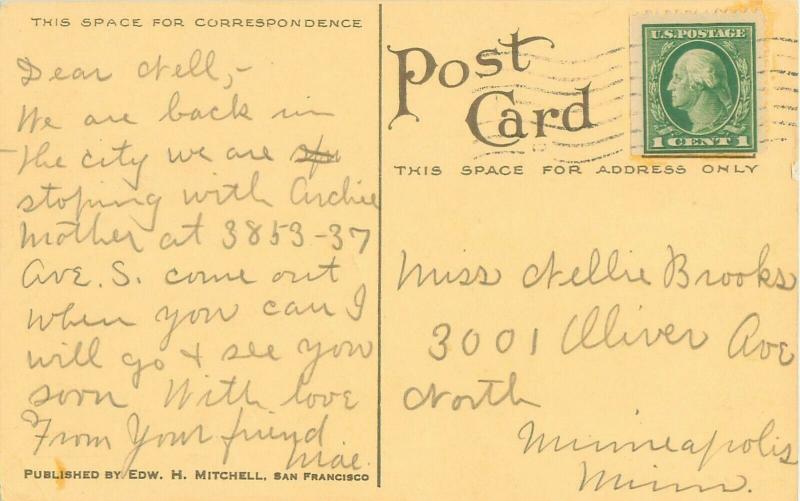 THIS SPACE FOR CORRESPONDENCE
Dear Nell,-
We are back in
the city we are
stoping with Archie
Mother at 3853-37
Ave. S. come out
when you can I
will go & see you
soon With love
From Your friend
Mae.
PUBLISHED BY EDW. H. MITCHELL, SAN FRANCISCO
Post
Card
THIS SPACE FOR ADDRESS ONLY
U.S. POSTAGE
1 CENT 1
Miss Nellie Brooks
3001 Oliver Ave
North
Minneapolis
Minn.